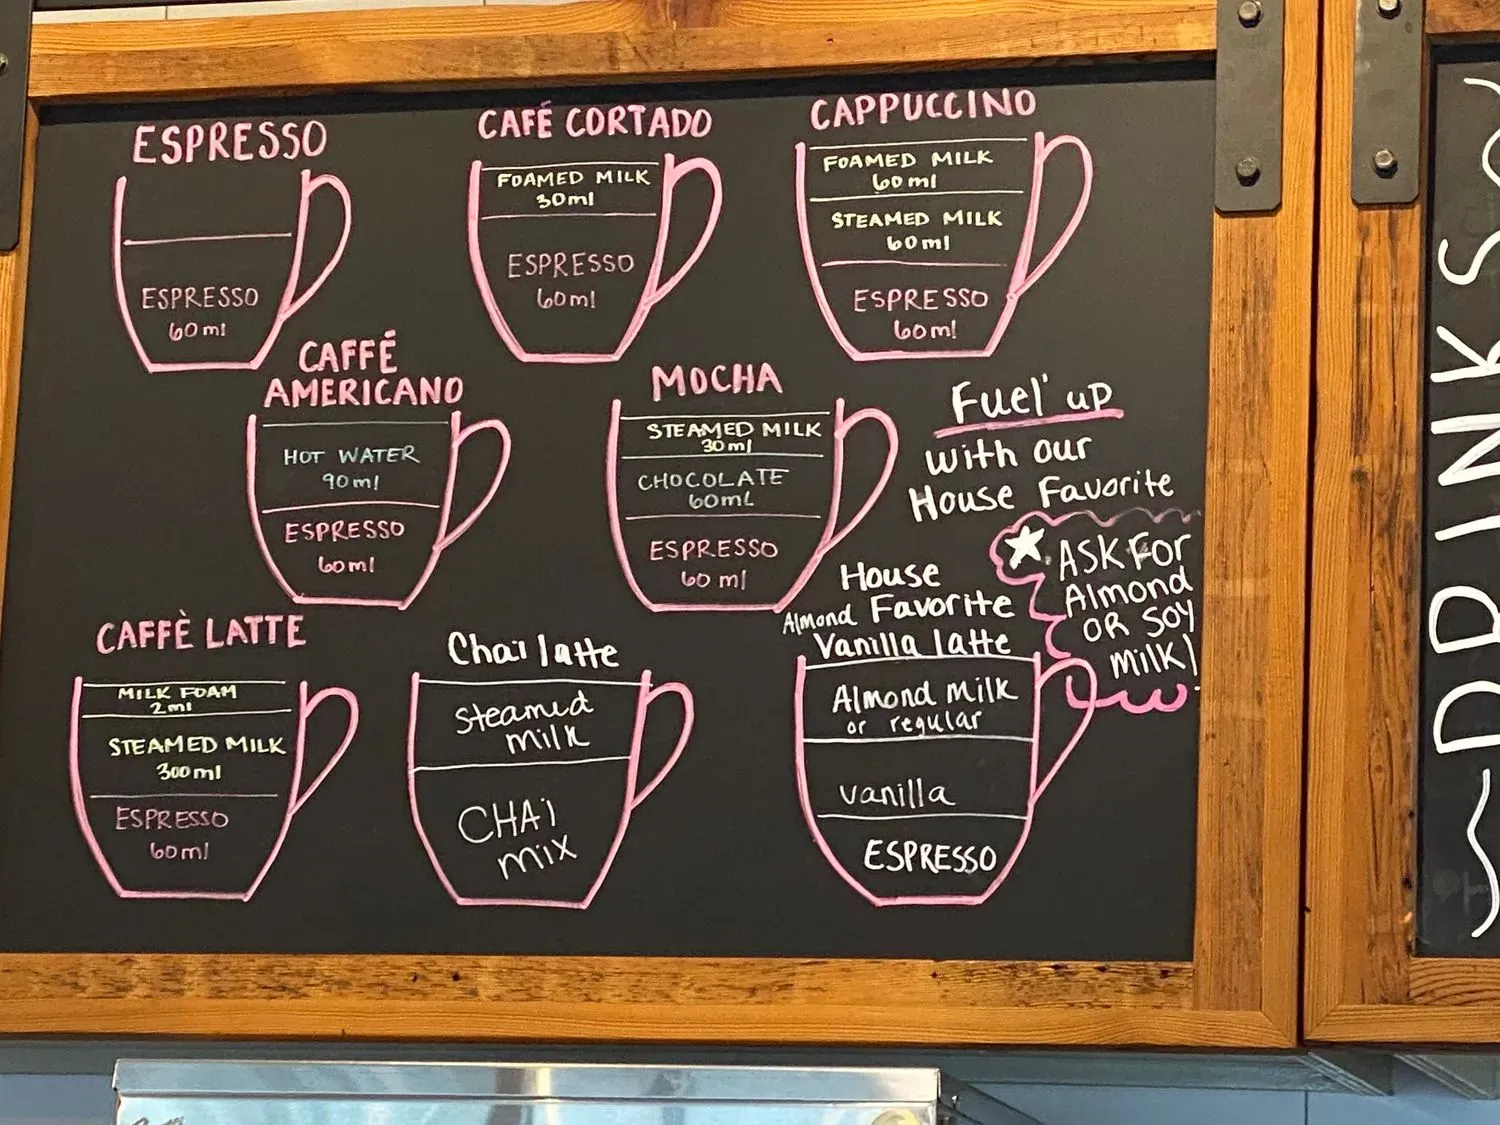 ESPRESSO
ESPRESSO
60ml
CAFÉ CORTADO
FOAMED MILK
30ml
ESPRESSO
60ml
CAPPUCCINO
FOAMED MILK
60ml
STEAMED MILK
60ml
ESPRESSO
60ml
CAFFÉ
AMERICANO
HOT WATER
90ml
ESPRESSO
60ml
MOCHA
STEAMED MILK
30ml
CHOCOLATE
60ml
ESPRESSO
60 ml
Fuel' up
with our
House Favorite
ASK FOR
Almond
OR SOY
milk!
CAFFÈ LATTE
MILK FOAM
2ml
STEAMED MILK
300ml
ESPRESSO
60ml
Chai latte
Steamed
milk
CHAi
mix
House
Almond Favorite
Vanilla latte
Almond milk
or regular
vanilla
ESPRESSO
DRINKS